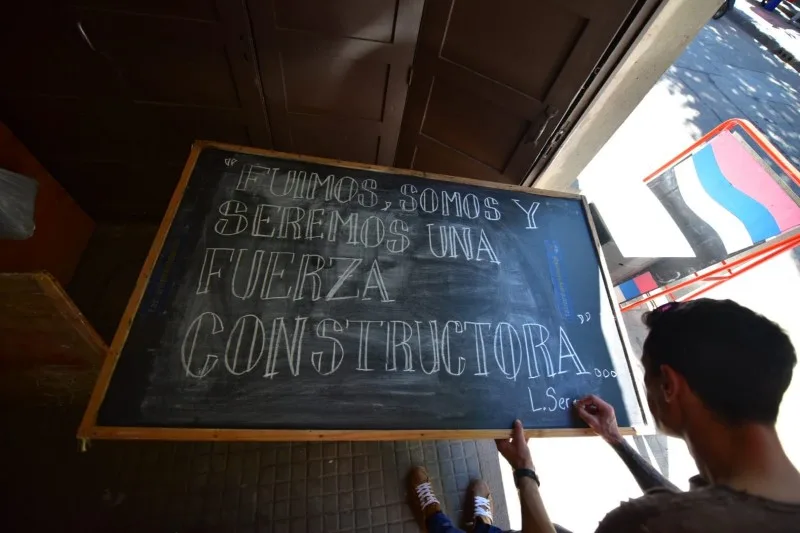 "FUIMOS, SOMOS Y
SEREMOS UNA
FUERZA
CONSTRUCTORA..."
L. Ser